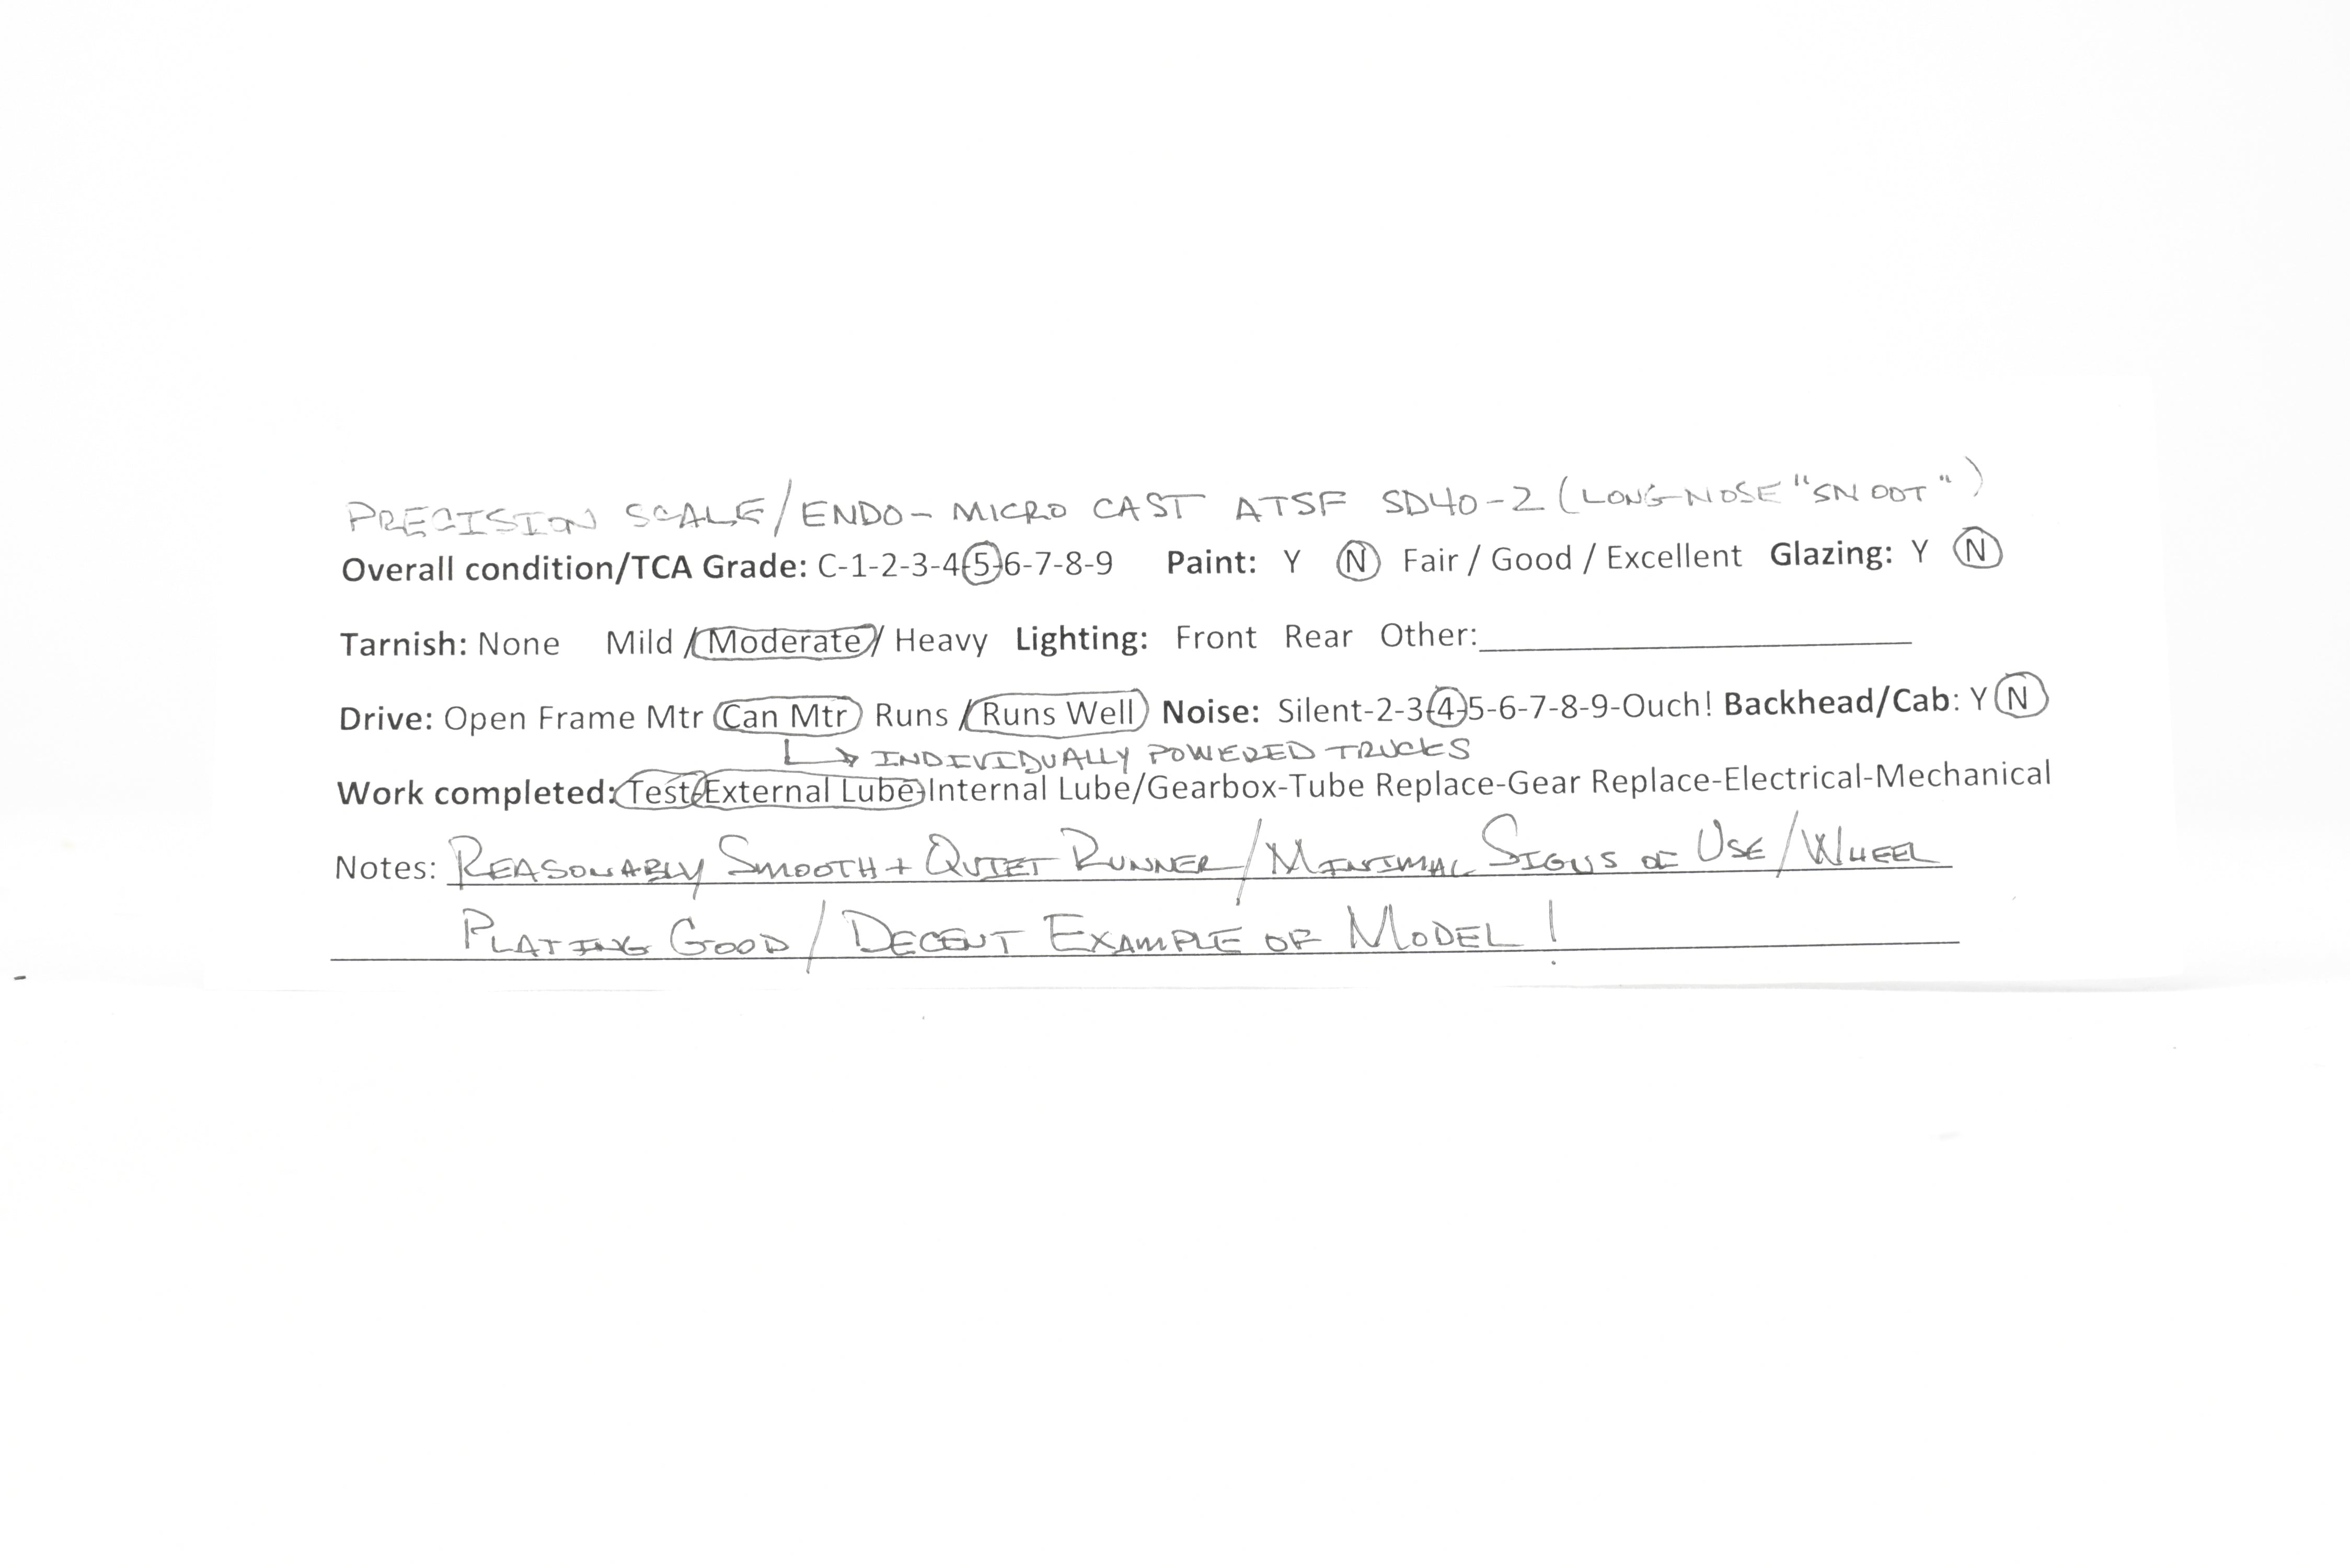 PRECISION SCALE/ENDO-MICRO CAST ATSF SD40-2 (LONG-NOSE "SNOOT")
Overall condition/TCA Grade: C-1-2-3-4-5-6-7-8-9 Paint: Y N Fair / Good / Excellent Glazing: Y N
Tarnish: None Mild / Moderate / Heavy Lighting: Front Rear Other:
Drive: Open Frame Mtr Can Mtr Runs / Runs Well Noise: Silent-2-3-4-5-6-7-8-9-Ouch! Backhead/Cab: Y N
INDIVIDUALLY POWERED TRUCKS
Work completed: Test-External Lube-Internal Lube/Gearbox-Tube Replace-Gear Replace-Electrical-Mechanical
Notes: REASONABLY SMOOTH + QUIET RUNNER/MINIMAL SIGNS OF USE/WHEEL
PLATING GOOD/DECENT EXAMPLE OF MODEL!